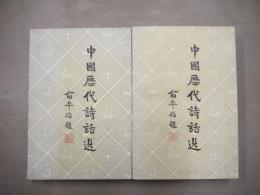 中國歷代詩話選
俞平伯題
中國歷代詩話選
俞平伯題